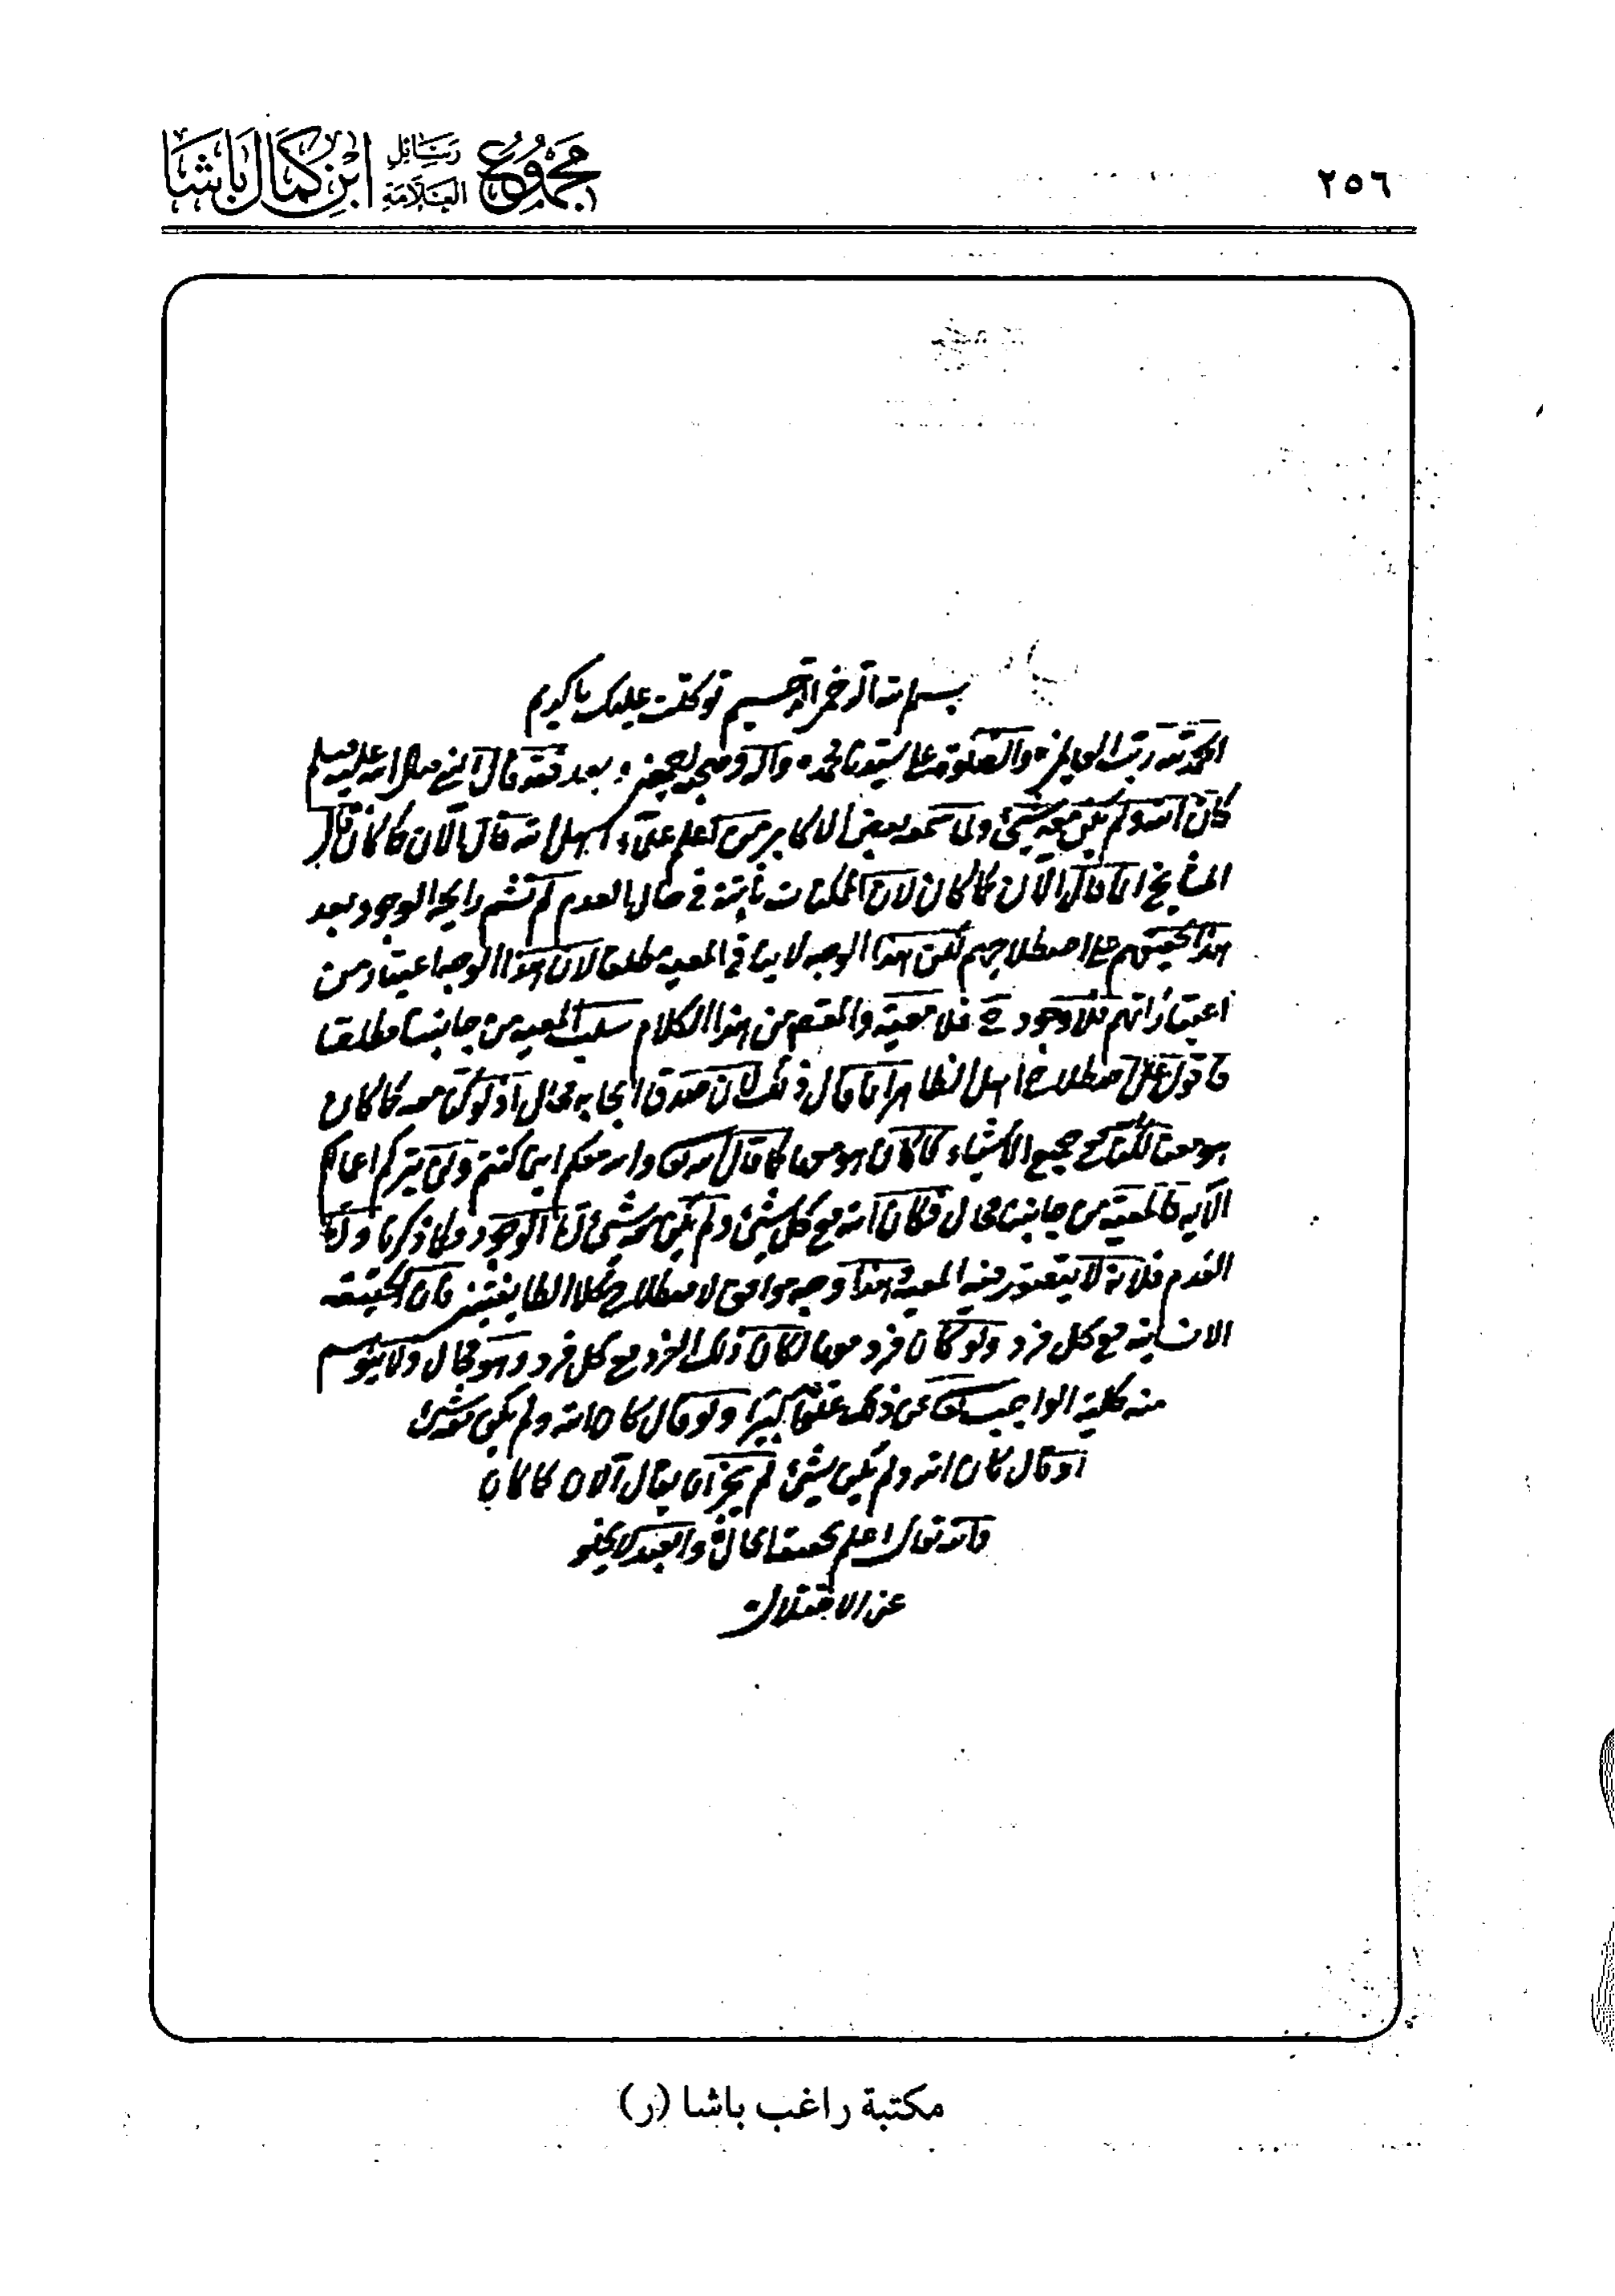 ٢٥٦
مجموع رسائل العلامة ابن كمال باشا
بسم الله الرحمن الرحيم توكلت عليك يا كريم
الحمد لله رب العالمين والصلوة على سيدنا محمد وآله وصحبه اجمعين وبعد فقد قال النبي صلى الله عليه وسلم
كان الله ولم يكن معه شئ ولما سمعه بعض الاكابر من اهل الله قال الآن كما كان قال
المشايخ انما قال الآن كما كان لان الممكنات ثابتة في حالها لعدم لم تشم رايحة الوجود بعد
هذا تحقيقهم على اصطلاحهم لكن هذا الوجه لا ينافي المعية مطلقا لان هذا الوجه اعتبار من
اعتباراتهم فلا وجود ح فلا معية والمقصود من هذا الكلام سلب المعية من جانبنا مطلقا
فاقول على اصطلاح اهل الظاهر انما قال ذلك لان صدق ايجابه محال اذ لم يكن معه كما كان
هو معنا لكنا مع جميع الاشياء كما كان هو معنا كما قال الله تعالى والله معكم اين كنتم ولن يتركم اعمالكم
الآية فالمعية من جانبنا محال فكان الله مع كل شئ ولم يكن معه شئ اما الوجود فلما ذكرنا واما
العدم فلانه لا يتصور منه المعية وهذا وجه موافق لاصطلاح كلا الطائفتين فان الحقيقة
الانسانية مع كل فرد ولو كان فرد معها لكان ذلك الفرد مع كل فرد وهو محال ولا يتوهم
منه كلية الواجب تعالى عن ذلك علوا كبيرا ولو قال كان الله ولم يكن معه شئ
او قال كان الله ولم يكن شئ لم يجز ان يقال الآن كما كان
والله تعالى اعلم بحقيقة الحال والعبد لا يخلو
عن الاختلال
مكتبة راغب باشا (ر)